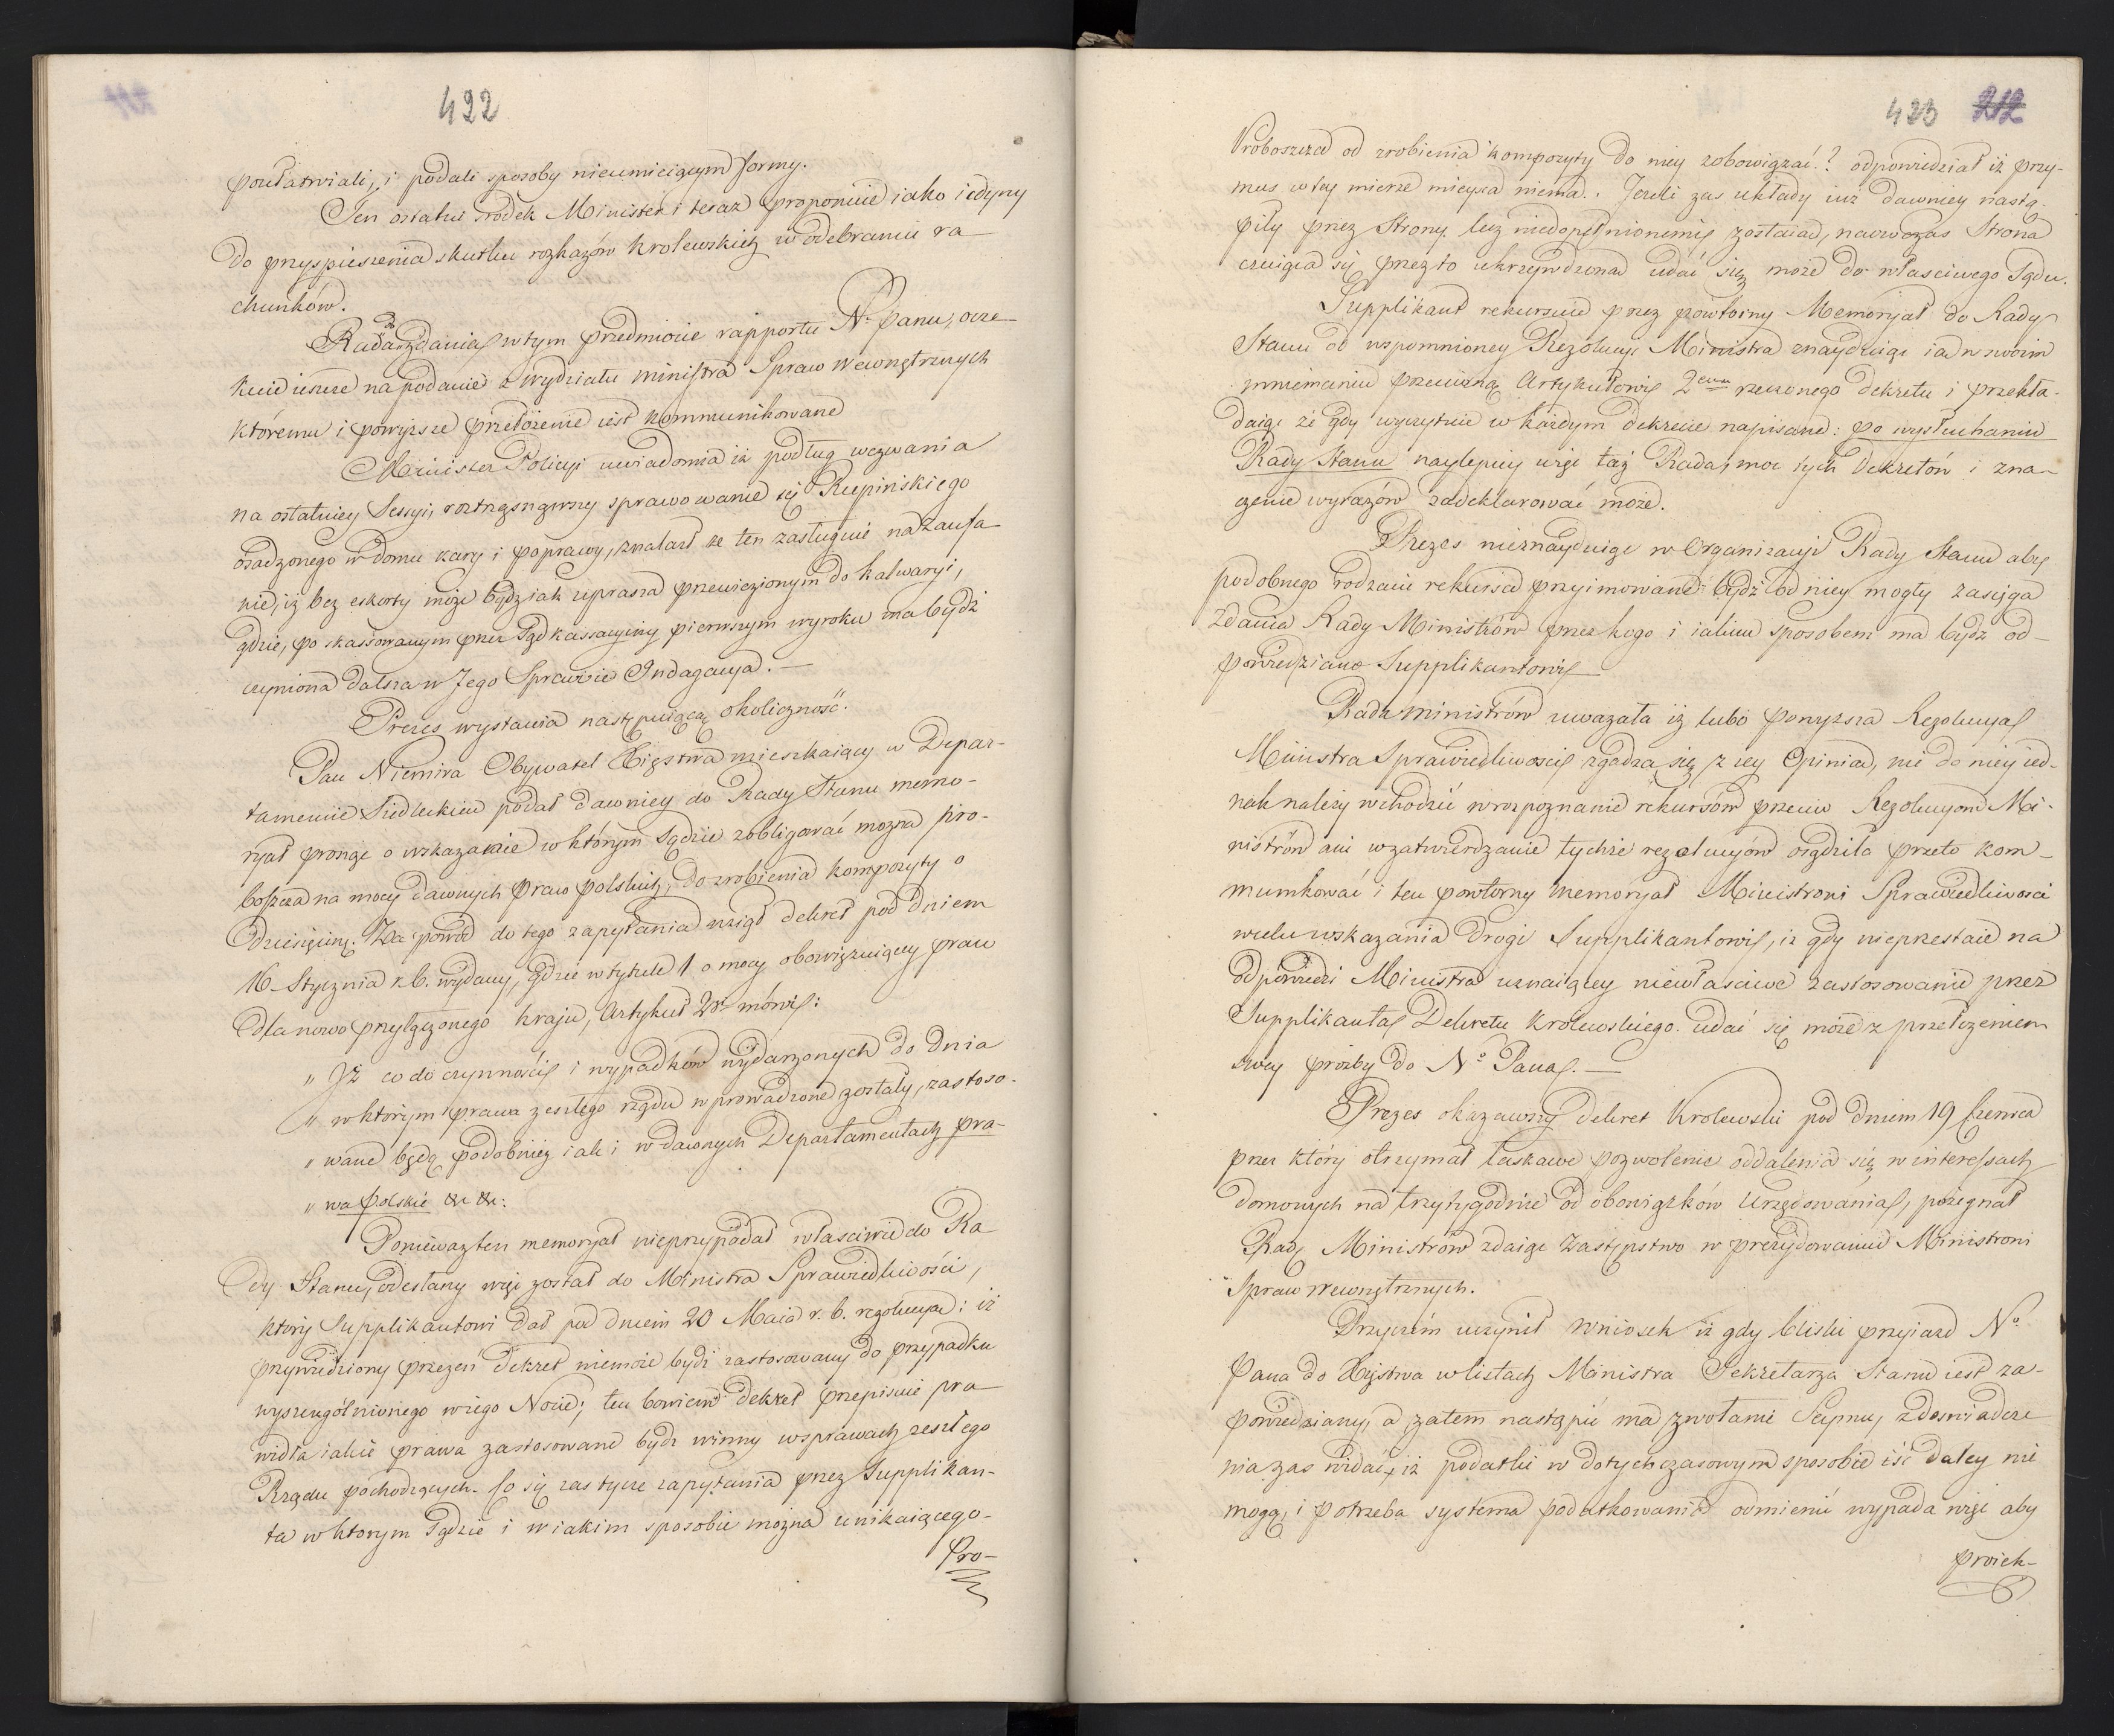 422
poułatwiali, i podali sposoby nieumieiącym formy.
Ten ostatni srodek Minister i teraz proponuie iako iedyny
do przyspieszenia skutku rozkazów Krolewskich w odebraniu ra
chunków.
Rada do zdania w tym przedmiocie rapportu N. Panu, ocze-
kuie ieszcze na podanie z wydziału Ministra Spraw Wewnętrznych
któremu i powyższe przełożenie iest kommunikowane
Minister Policyi uwiadomia iż podług wezwania
na ostatniey Sessyi, roztrząsnąwszy sprawowanie się Rupińskiego
osadzonego w domu kary i poprawy, znalazł że ten zasługuie na zaufa
nie, iż bez eskorty może bydź iak uprasza przewiezionym do Kalwaryi,
gdzie, po skassowanym przez Sąd kassacyiny pierwszym wyroku ma bydź
czyniona dalsza w Jego Sprawie Indagacya. —
Prezes wystawia następuiącą okoliczność.
Pan Niemira Obywatel Xięstwa mieszkaiący w Depar-
tamencie Siedleckim podał dawniey do Rady Stanu memo-
ryał prosząc o wskazanie w którym Sądzie zobligować mozna pro-
boszcza na mocy dawnych praw polskich, do zrobienia kompozyty o
Dziesięcinę. Za powod do tego zapytania wziął dekret pod dniem
16 Stycznia r. b. wydany, gdzie w tytule 1 o mocy obowiązuiącey praw
dla nowo przyłączonego kraju, Artykuł 2gi mówi:
" Iż co do czynności i wypadków wydarzonych do dnia
" w którym prawa zeszłego rządu wprowadzone zostały, zastoso-
" wane będą podobnież iak i w dawnych Departamentach pra-
" wa polskie &c &c:
Ponieważ ten memoryał nieprzypadał własciwie do Ra
dy Stanu, odesłany więc został do Ministra Sprawiedliwości,
który Supplikantowi dał pod dniem 20 Maia r. b. rezolucya: iż
przywiedziony przezeń dekret niemoże bydź zastosowany do przypadku
wyszczególnionego w iego Nocie; ten bowiem dekret przepisuie pra
widła iakie prawa zastosowane bydź winny w sprawach zeszłego
Rządu pochodzących. Co się zas tycze zapytania przez Supplikan-
ta w ktorym Sądzie i w iakim sposobie można unikaiącego-
Pro-
423 212
Proboszcza od zrobienia kompozyty do niey zobowiązać? odpowiedział iż przy-
mus w tey mierze mieysca niema. Jezeli zas układy iuż dawniey nastą-
piły przez Strony lecz niedopełnionemi zostaią, naowczas Strona
czuiąca się przez to ukrzywdzoną udać się może do własciwego Sądu.
Supplikant rekursuie przez powtórny Memoryał do Rady
Stanu od wspomnioney Rezolucyi Ministra znayduiąc ią w swoim
mniemaniu przeciwną Artykułowi 2emu rzeczonego dekretu i przekła-
daiąc że gdy wyczytuie w każdym dekrecie napisane: po wysłuchaniu
Rady Stanu naylepiey więc taż Rada, moc tych dekretów i zna-
czenie wyrazów zadeklarować może.
Prezes nieznayduiąc w Organizacyi Rady Stanu aby
podobnego rodzaiu rekursa przyimowane bydź od niey mogły zasięga
zdania Rady Ministrów przez kogo i iakim sposobem ma bydź od-
powiedziano Supplikantowi
Rada Ministrów uwazała iż lubo powyższa Rezolucya
Ministra Sprawiedliwosci zgadza się z iey Opinią, nie do niey ied-
nak należy wchodzić w rozpoznanie rekursów przeciw Rezolucyom Mi-
nistrów ani w zatwierdzanie tychże rezolucyów osądziła przeto kom-
munikować i ten powtórny memoryał Ministrowi Sprawiedliwosci
w celu wskazania drogi Supplikantowi, iż gdy nieprzestaie na
odpowiedzi Ministra uznaiącey niewłasciwe zastosowanie przez
Supplikanta Dekretu Krolewskiego udać się może z przełożeniem
swey prożby do No Pana. —
Prezes okazawszy dekret Krolewski pod dniem 19 Czerwca
przez który otrzymał łaskawe pozwolenie oddalenia się w interessach
domowych na trzy tygodnie od obowiązków Urzędowania, pożegnał
Radę Ministrów zdaiąc zastępstwo w prezydowaniu Ministrowi
Spraw Wewnętrznych.
Przyczém uczynił wniosek iż gdy bliski przyiazd No
Pana do Xięstwa w listach Ministra Sekretarza Stanu iest za-
powiedziany, a zatem nastąpić ma zwołanie Seymu, z doswiadcze
nia zas widać, iż podatki w dotychczasowym sposobie iść daley nie
mogą, i potrzeba systema podatkowania odmienić wypada więc aby
proiek-